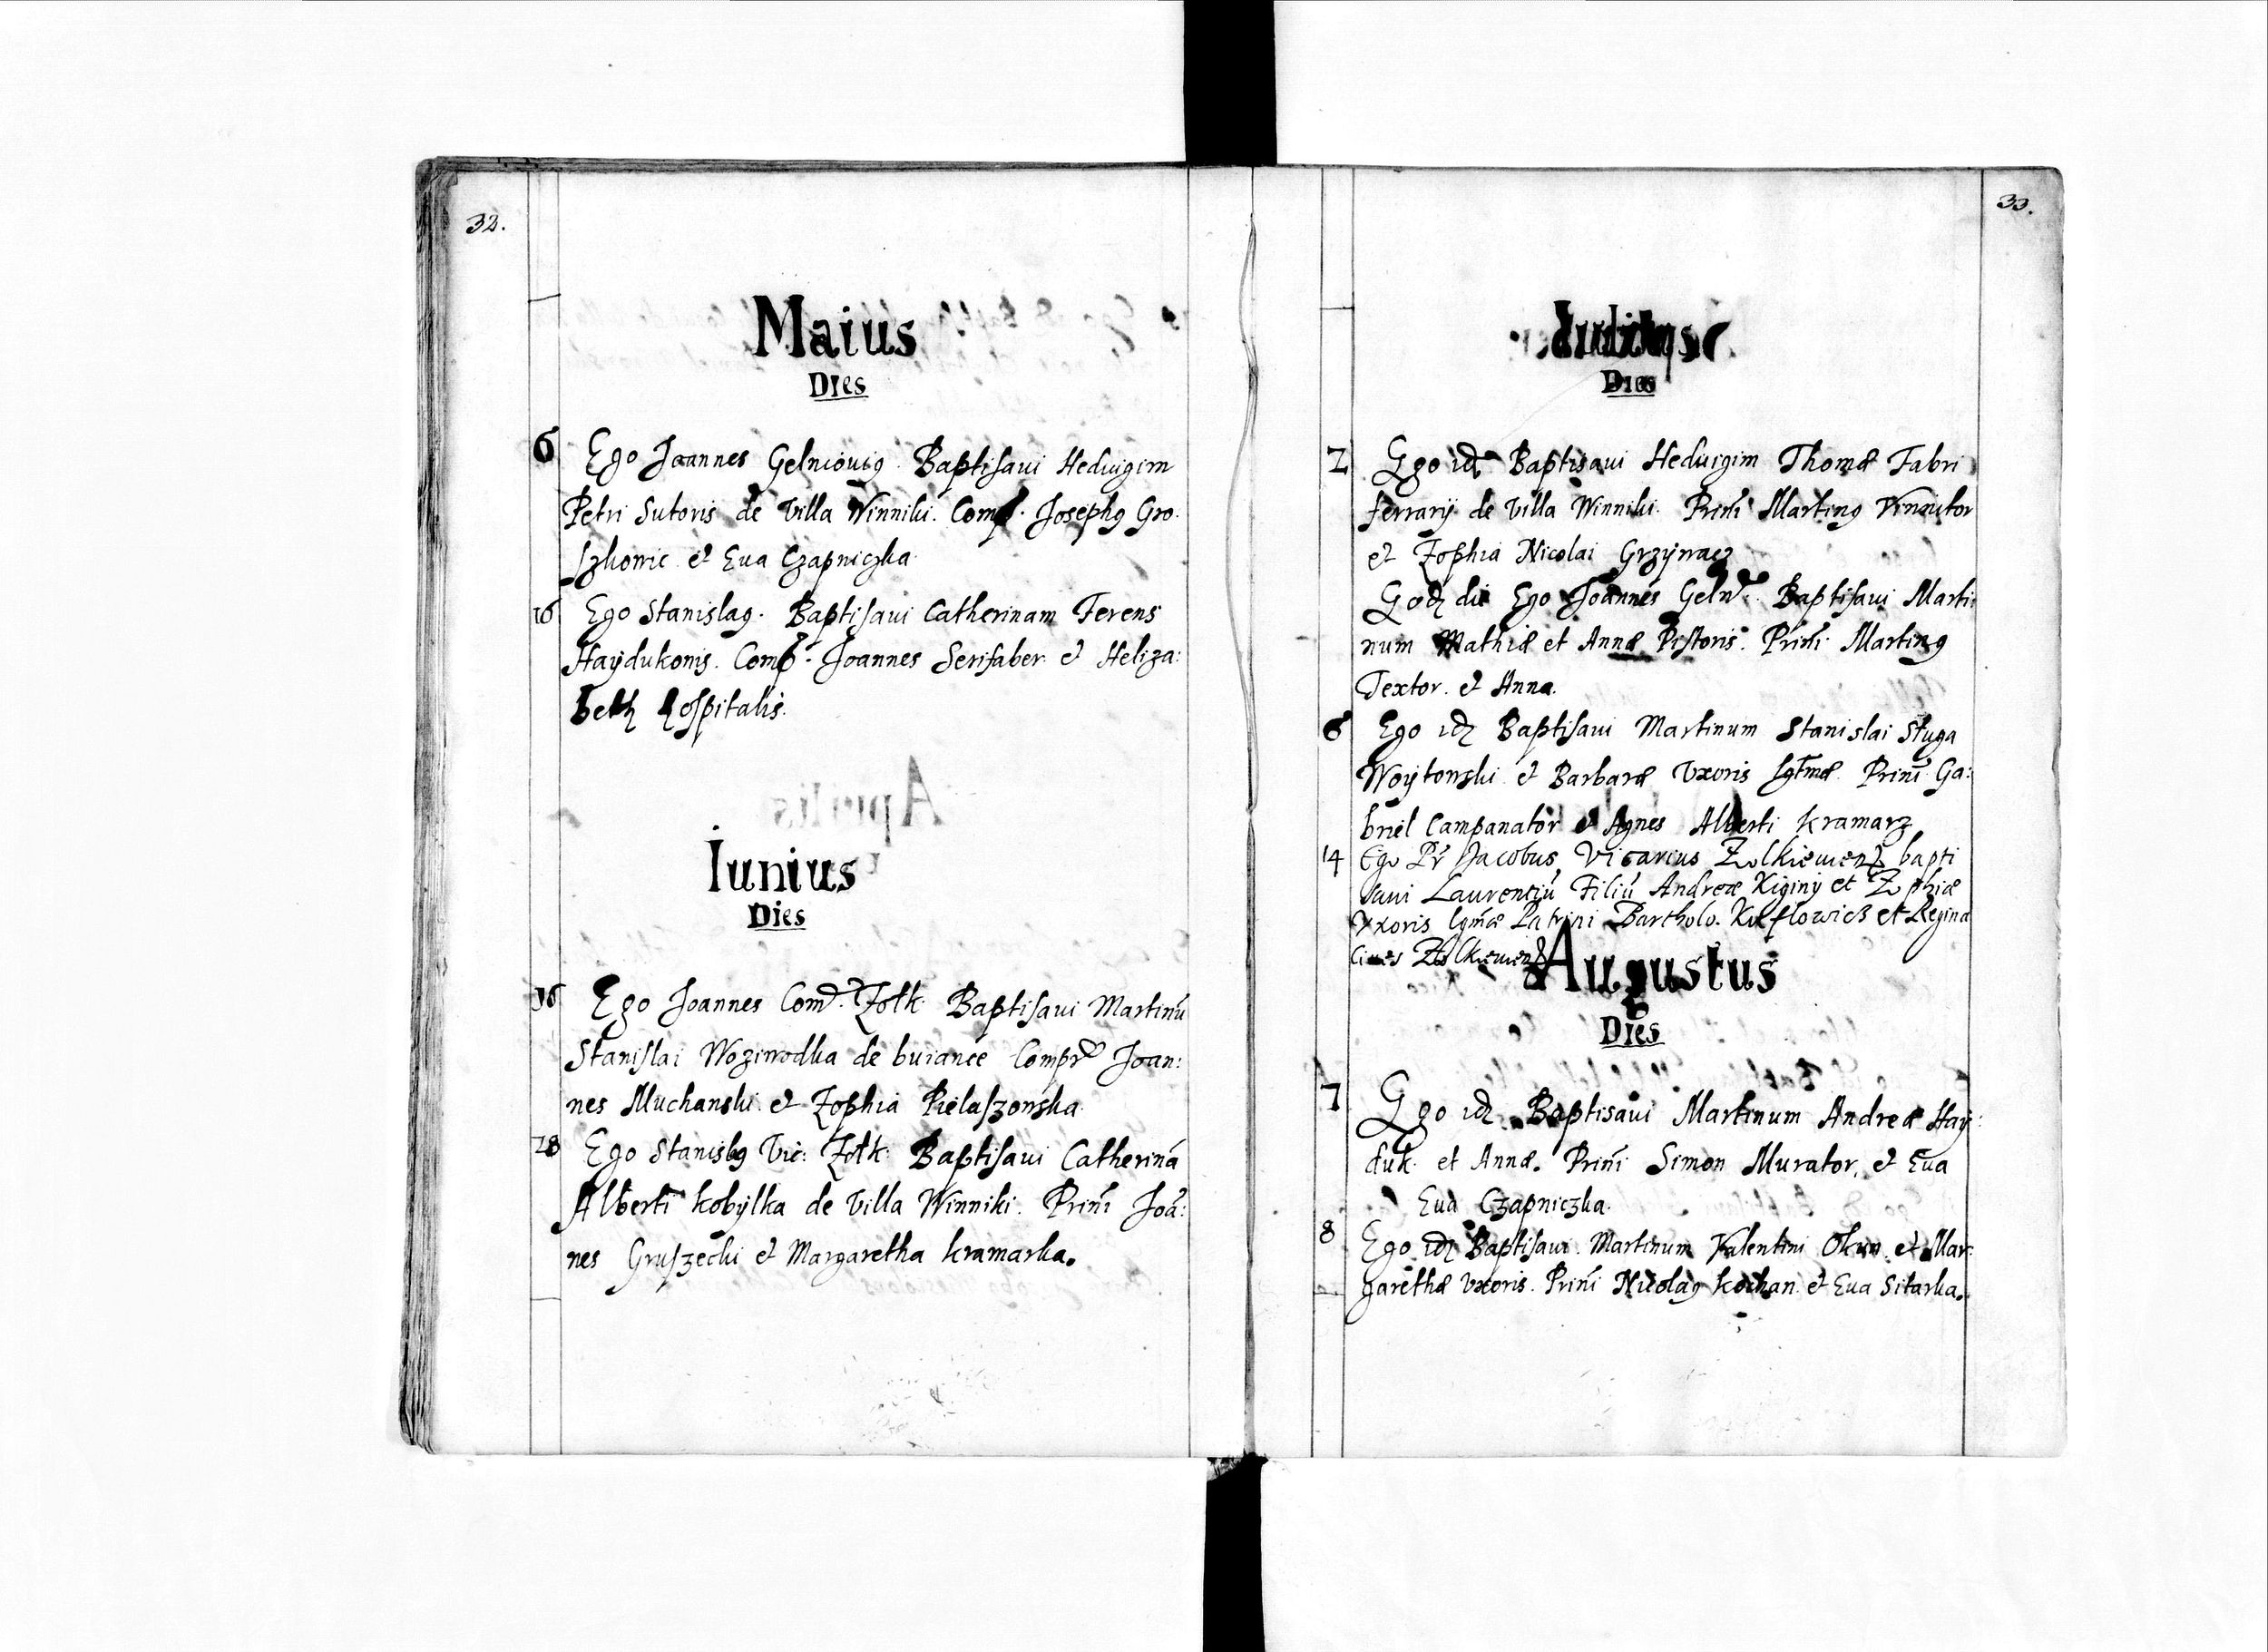 32.
Maius
Dies
6 Ego Joannes Gelniouig. Baptisaui Heduigim
Petri Sutoris de Villa Winniki. Comp. Josephg Gro.
szkowic et Eua Czapniczka
16 Ego Stanislag. Baptisaui Catherinam Ferens
Haÿdukonis. Comp. Joannes Serifaber et Heliza:
beth hospitalis.
Iunius
Dies
16 Ego Joannes Com. Zolk Baptisaui Martinū
Stanislai Woziwodka de buiance Compr Joan:
nes Muchanski et Zophia Pielaszonska
28 Ego Stanislg Vic: Zolk. Baptisaui Catherinā
Alberti kobÿlka de Villa Winniki. Prini Joā:
nes Gruszecki et Margaretha kramarka.
33.
Julius
Dies
2 Ego id Baptisaui Heduigim Thomæ Fabri
ferrarÿ de Villa Winniki. Prini Marting Vinnitor
et Zophia Nicolai Grzÿwacz
Eod die Ego Joannes Geln. Baptisaui Marti:
num Mathiæ et Annæ Pistoris. Prini Marting
Textor. et Anna.
6 Ego id Baptisaui Martinum Stanislai Sługa
Woÿtonski et Barbaræ Vxoris lgtmæ. Prini Ga:
briel Campanator et Agnes Alberti kramarz
14 Ego Pr Jacobus Vicarius Zolkiewen bapti
saui Laurentiū Filiū Andreæ Kiginÿ et Zophiæ
Vxoris lgmæ Patrini Bartholo. et Regina
Ciues Zolkiewen
Augustus
Dies
7 Ego id Baptisaui Martinum Andreæ Haÿ:
duk. et Annæ. Prini Simon Murator, et Eua
Eua Czapniczka.
8 Ego id Baptisaui. Martinum Valentini Okun et Mar:
garethæ Vxoris. Prini Nicolag kochan et Eua Sitarka.